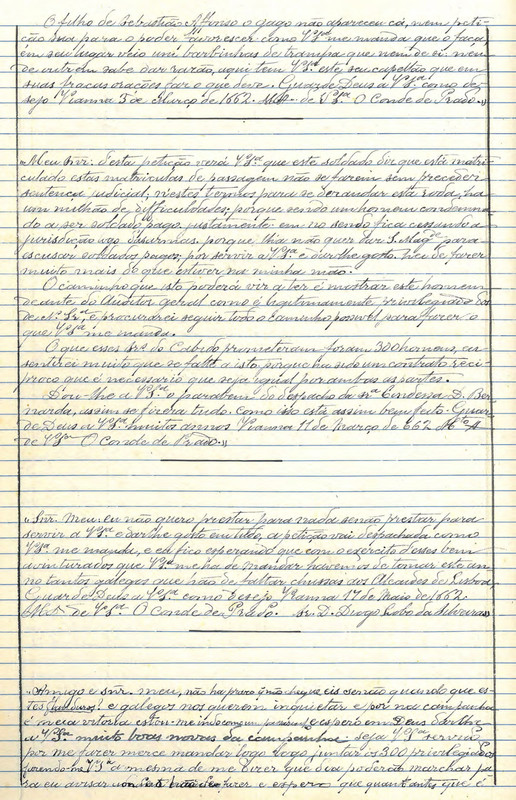 O filho de Sebastião Affonso o gago não appareceu cá, nem peti-
ção sua para o poder favorescer como V.Sª me manda que o faça
em seu lugar veio um barbinhas de trampa que nem de si nem
de outrem sabe dar razão, aqui tem V.Sª este seu capellão que em
suas fracas orações faz o que deve. Guarde Deus a V.Sª como de-
sejo Vianna 3 de Março de 1662. de V.Sª O Conde de Prado.»
«Meu Snr: desta petição verá V.Sª que este soldado diz que está matri-
culado estas matriculas de passagem não se fazem sem preceder
sentença judicial; nestes termos para se derandar esta roda, ha
um milhão de difficuldades; porque sendo um homem condemna-
do a ser soldado pago, justamente em no sendo fica cursando a
jurisdição das armas, porque lhia não quer dar S. Magᵈᵉ para
escusar soldados pagos; por servir a V.Sª e dar lhe gosto, hei de fazer
muito mais do que estiver na minha mão.
O caminho que isto poderá vir a ter é mostrar este homem
deante do Auditor geral como é legitimamente privilegiado dos
de Nª Srª, e procurarei seguir todo o caminho possivel para fazer o
que V.Sª me manda.
O que esses Srs do Cabido prometeram foram 300 homens, e
sentirei muito que se falte a isto, porque ha sido um contrato reci-
proco que é necessario que seja igual por ambas as partes.
Dou-lhe a V.Sª o parabem do despacho da Srª Condessa D. Ber-
narda, assim se fizera tudo. Como isto está assim bem feito. Guar-
de Deus a V.Sª muitos annos Vianna 11 de Março de 662
de V.Sª O Conde de Prado.»
«Snr. Meu: eu não quero prestar para nada senão prestar para
servir a V.Sª e dar lhe gosto em tudo, a petição vai despachada como
V.Sª me manda, e cá fico esperando que com o exército desses bem
aventurados que V.Sª me ha de mandar havemos de tomar este an-
no tantos galegos que hão de faltar chussas aos Alcaides de Lisboa,
Guarde Deus a V.Sª como desejo Vianna 17 de Maio de 1662
de V.Sª O Conde de Prado. Sr. D. Diogo Lobo da Silveira»
«Amigo e snr. meu, não ha praso q não chegue eis senão quando que es-
tes galegos nos querem inquietar e por na campanha
é meia vitoria estou-me indo e espero em Deus dar lhe
a V.Sª muito boas novas da campanha seja V.Sª servido
por me fazer merce mandar logo logo juntar os 300 privilegiados
fazendo-me V.Sª a mesma de me dizer que dia poderão marchar pa-
ra eu avisar fazer e espero que quantantes que é